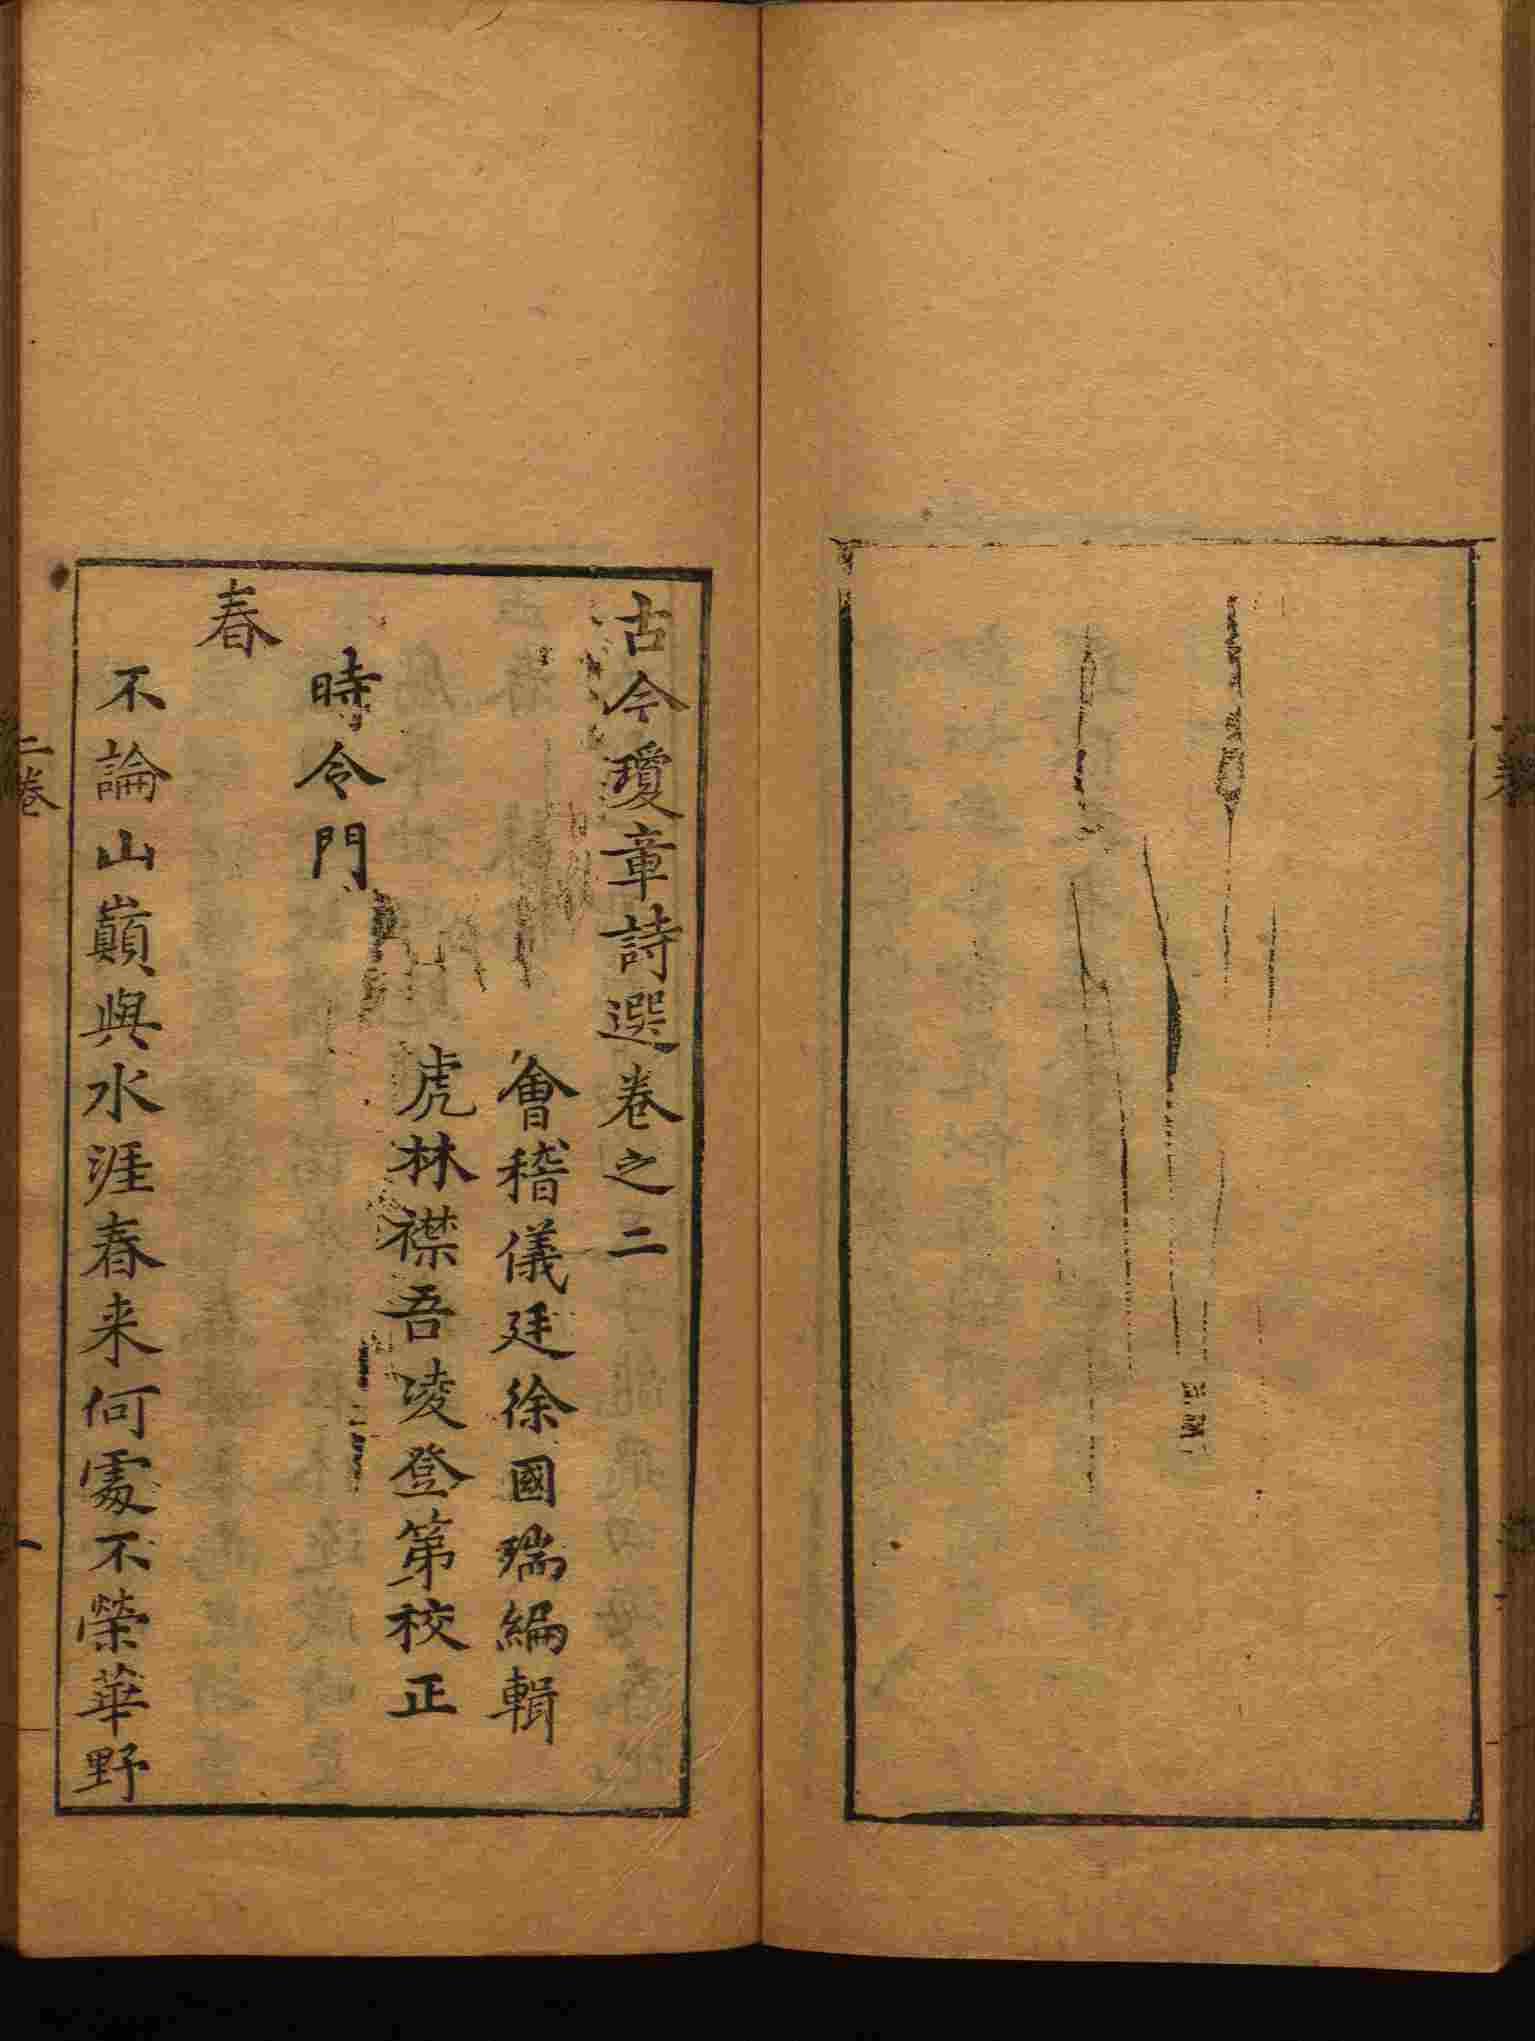 古今瓊章詩選卷之二
會稽儀廷徐國瑞編輯
虎林襟吾凌登第校正
時令門
春
不論山巔與水涯春来何處不榮華野
二卷
一